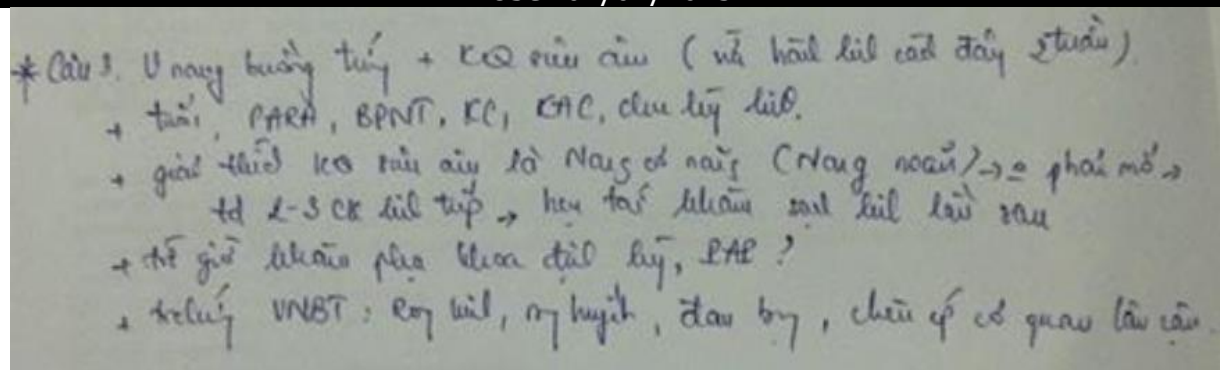 * Câu 3. U nang buồng trứng + KQ siêu âm (vừa hành kinh cách đây 2 tuần).
+ tuổi, PARA, BPNT, KC, chu kỳ kinh.
+ giải thích KQ siêu âm là Nang cơ năng (Nang noãn) → phải mổ →
td 2-3 CK kinh tiếp → hẹn tái khám sạch kinh lần sau
+ khám phụ khoa định kỳ, PAP?
+ UNBT: RL kinh, đau bụng, chèn ép cơ quan lân cận.